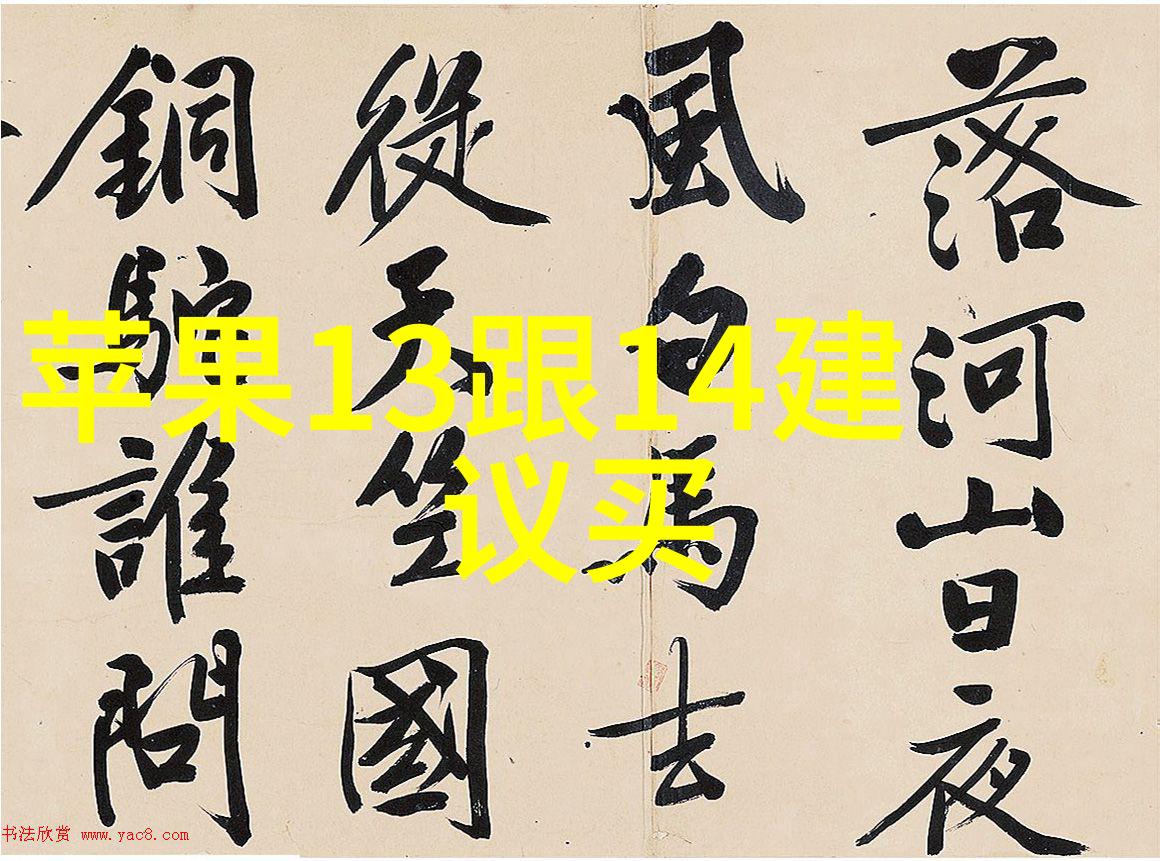 落河山日夜
風白馬去
從天竺國
銅駝誰問
苹果13跟14建
议买
书法欣赏 www.yac8.com